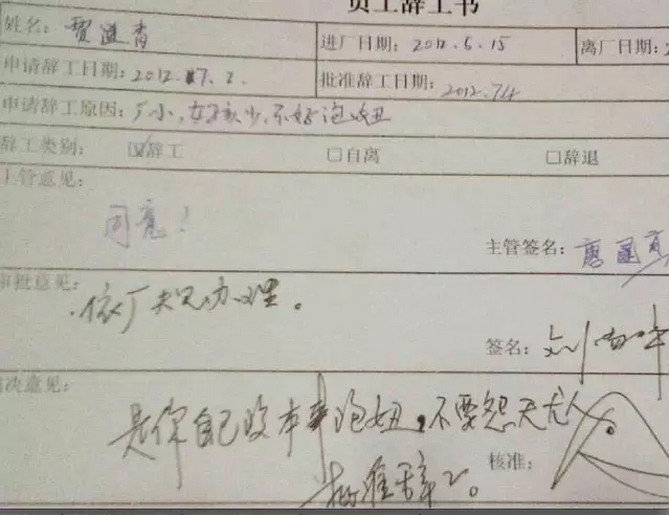 员工辞工书
姓名: 贾
进厂日期: 2012.6.15
离厂日期:
申请辞工日期: 2012.7.2.
批准辞工日期: 2012.7.4
申请辞工原因: 厂小,女孩少,不好泡妞
辞工类别: ☑辞工 □自离 □辞退
主管意见:
同意!
主管签名:
审批意见:
依厂规办理。
签名: 刘
决意见:
是你自己没本事泡妞,不要怨天尤人。
核准:
批准辞工。